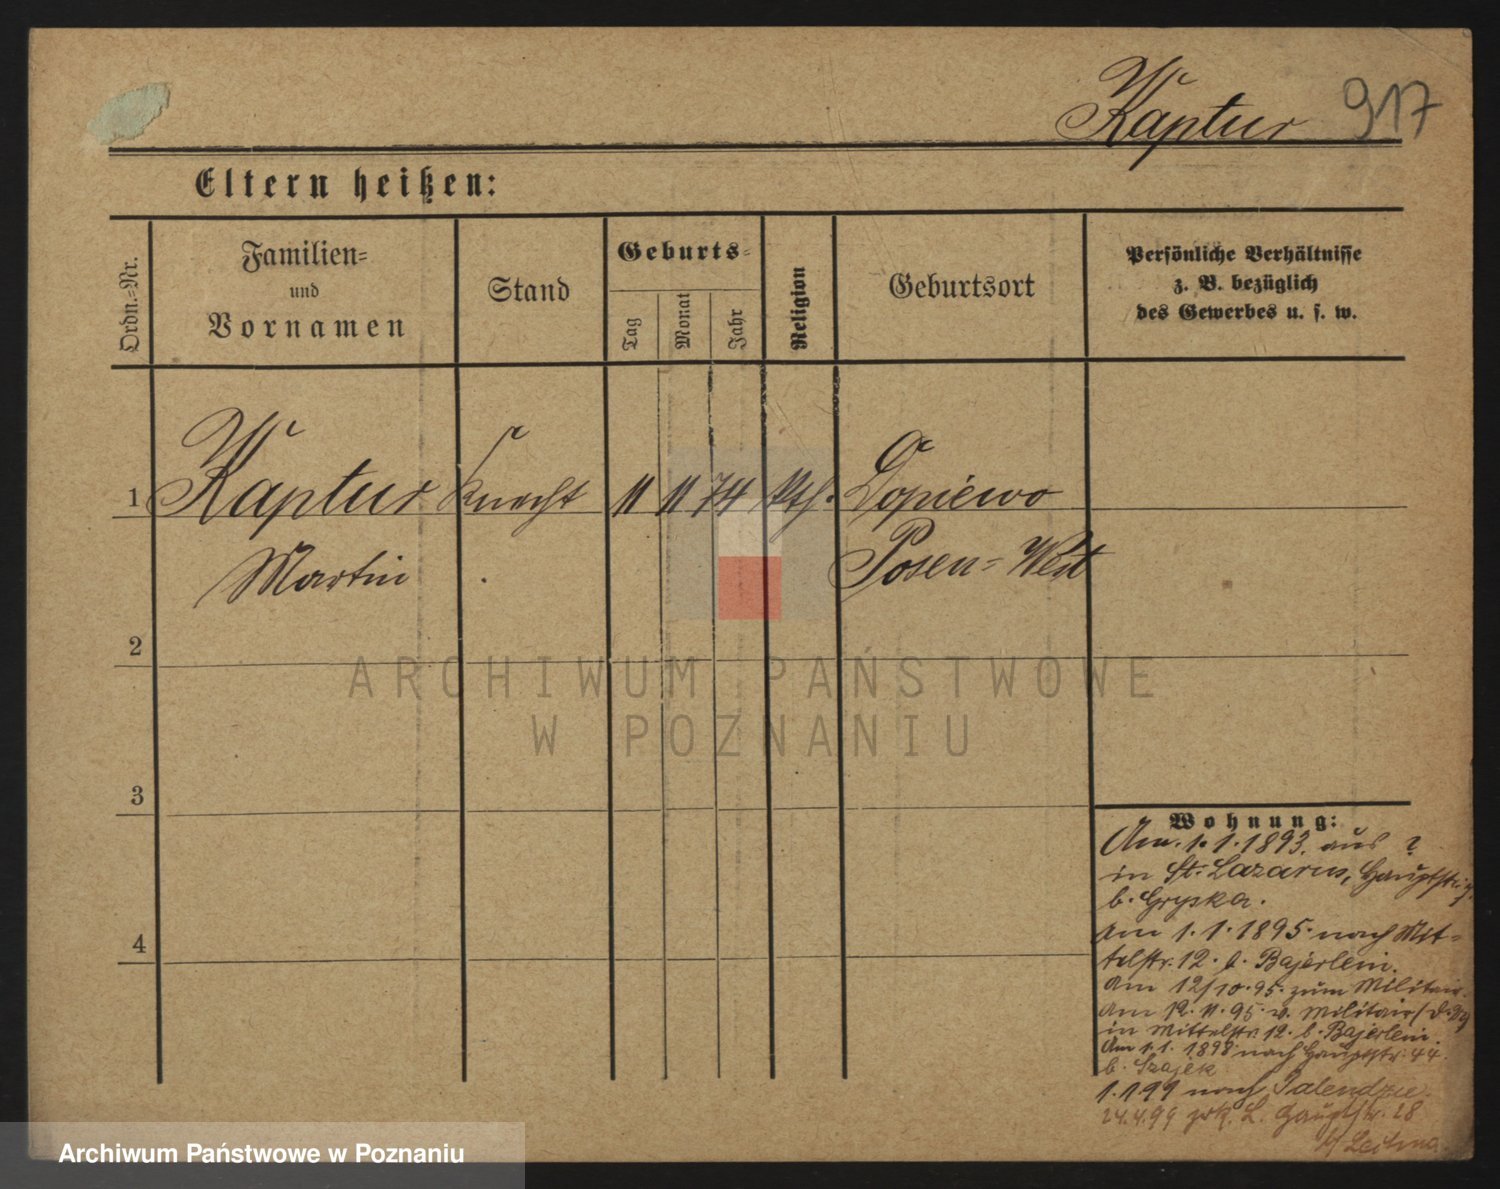 Kaptur 917
Eltern heißen:
Ordn.-Nr.
Familien-
und
Vornamen
Stand
Geburts-
Tag
Monat
Jahr
Religion
Geburtsort
Persönliche Verhältnisse
z. B. bezüglich
des Gewerbes u. s. w.
1 Kaptur Knecht 11 11 74 kth. Dopiewo
Martin Posen-West
2
3
4
Wohnung:
Am. 1.1.1893. aus ?
in St. Lazarus, Hauptstr.
b. Gryska.
Am 1.1.1895 nach Mit-
telstr. 12. b. Bajerlein.
Am 12/10.95. zum Militair.
Am 12.11.95 v. Militair
in Mittelstr. 12. b. Bajerlein.
Am 1.1.1898 nach Hauptstr. 44.
b. Szajek
1.1.99 nach Palendzie.
24.4.99 L. Hauptstr. 28
ARCHIWUM PAŃSTWOWE
W POZNANIU
Archiwum Państwowe w Poznaniu